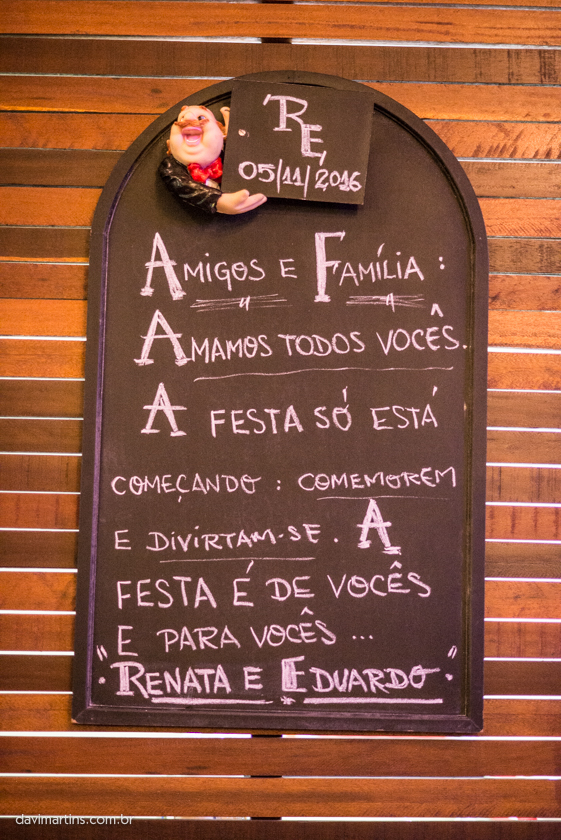 RE,
05/11/2016
AMIGOS E FAMÍLIA :
AMAMOS TODOS VOCÊS.
A FESTA SÓ ESTÁ
COMEÇANDO : COMEMOREM
E DIVIRTAM-SE . A
FESTA É DE VOCÊS
E PARA VOCÊS ...
"RENATA E EDUARDO"
davimartins.com.br